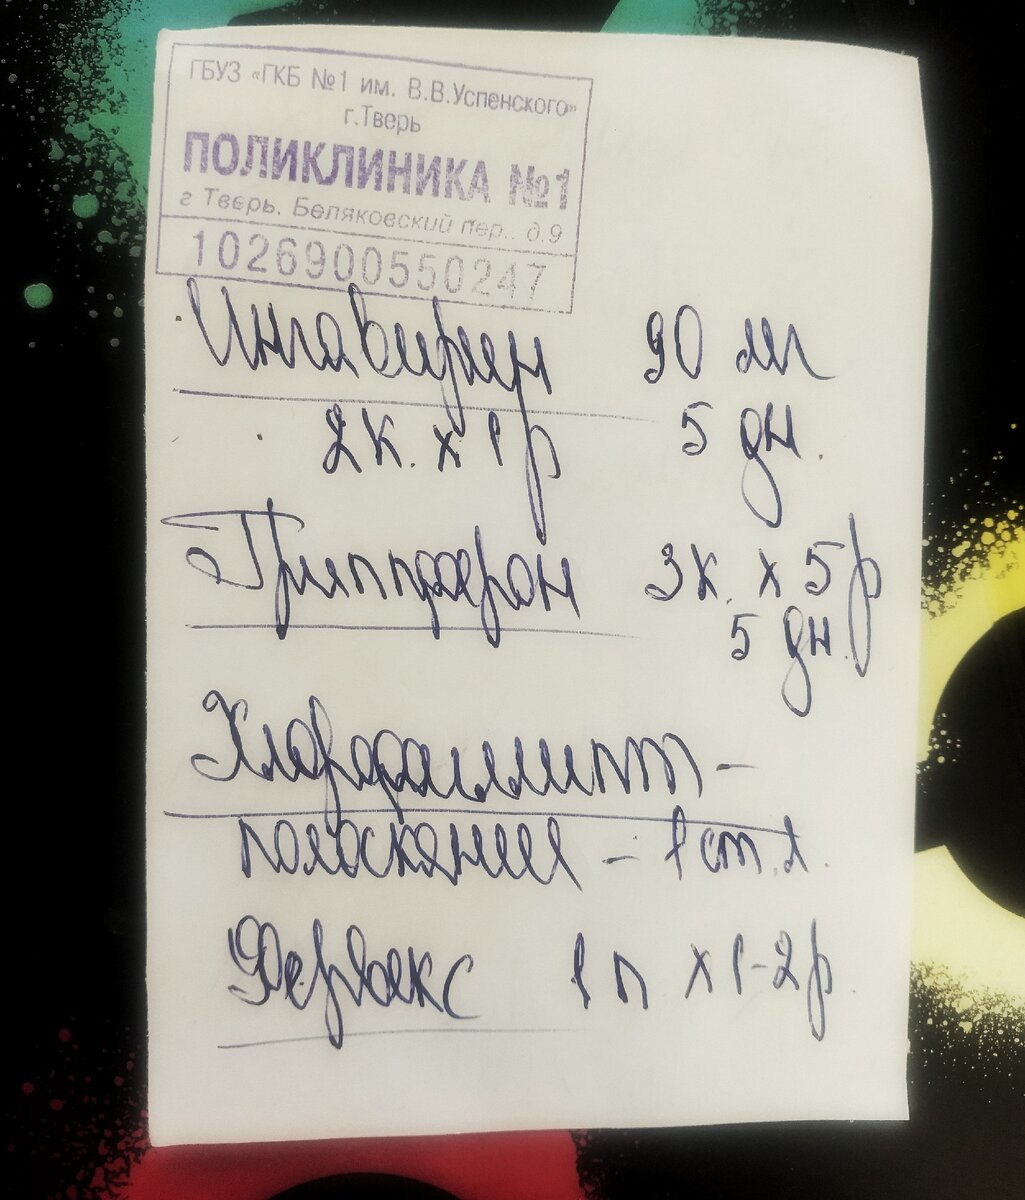 ГБУЗ «ГКБ №1 им. В.В.Успенского»
г.Тверь
ПОЛИКЛИНИКА №1
г Тверь. Беляковский пер., д.9
1026900550247
Ингавирин 90 мг
2к. х 1 р 5 дн.
Гриппферон 3к. х 5 р
5 дн.
Хлорофиллипт –
полоскания – 1 ст.л.
Фервекс 1 п х 1-2 р.